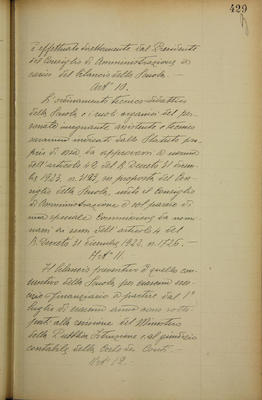 429
è effettuato direttamente dal Presidente
del Consiglio di Amministrazione a
carico del bilancio della Scuola. —
Art. 10.
L'ordinamento tecnico-didattico
della Scuola e i ruoli organici del per-
sonale insegnante, assistente e tecnico
saranno indicati dallo Statuto pro-
prio di essa da approvarsi a norma
dell'articolo 42 del R. Decreto 31 dicem-
bre 1923, n. 3123, su proposta del Con-
siglio della Scuola, udito il Consiglio
di Amministrazione e col parere di
una speciale Commissione da nomi-
narsi ai sensi dell'articolo 4 del
R. Decreto 31 dicembre 1922 n. 1726. —
Art. 11.
Il bilancio preventivo e quello con-
suntivo della Scuola per ciascun eser-
cizio finanziario a partire dal 1°
luglio di ciascun anno sono sotto-
posti alla revisione del Ministero
della Pubblica Istruzione e al giudizio
contabile della Corte dei Conti. —
Art. 12. —